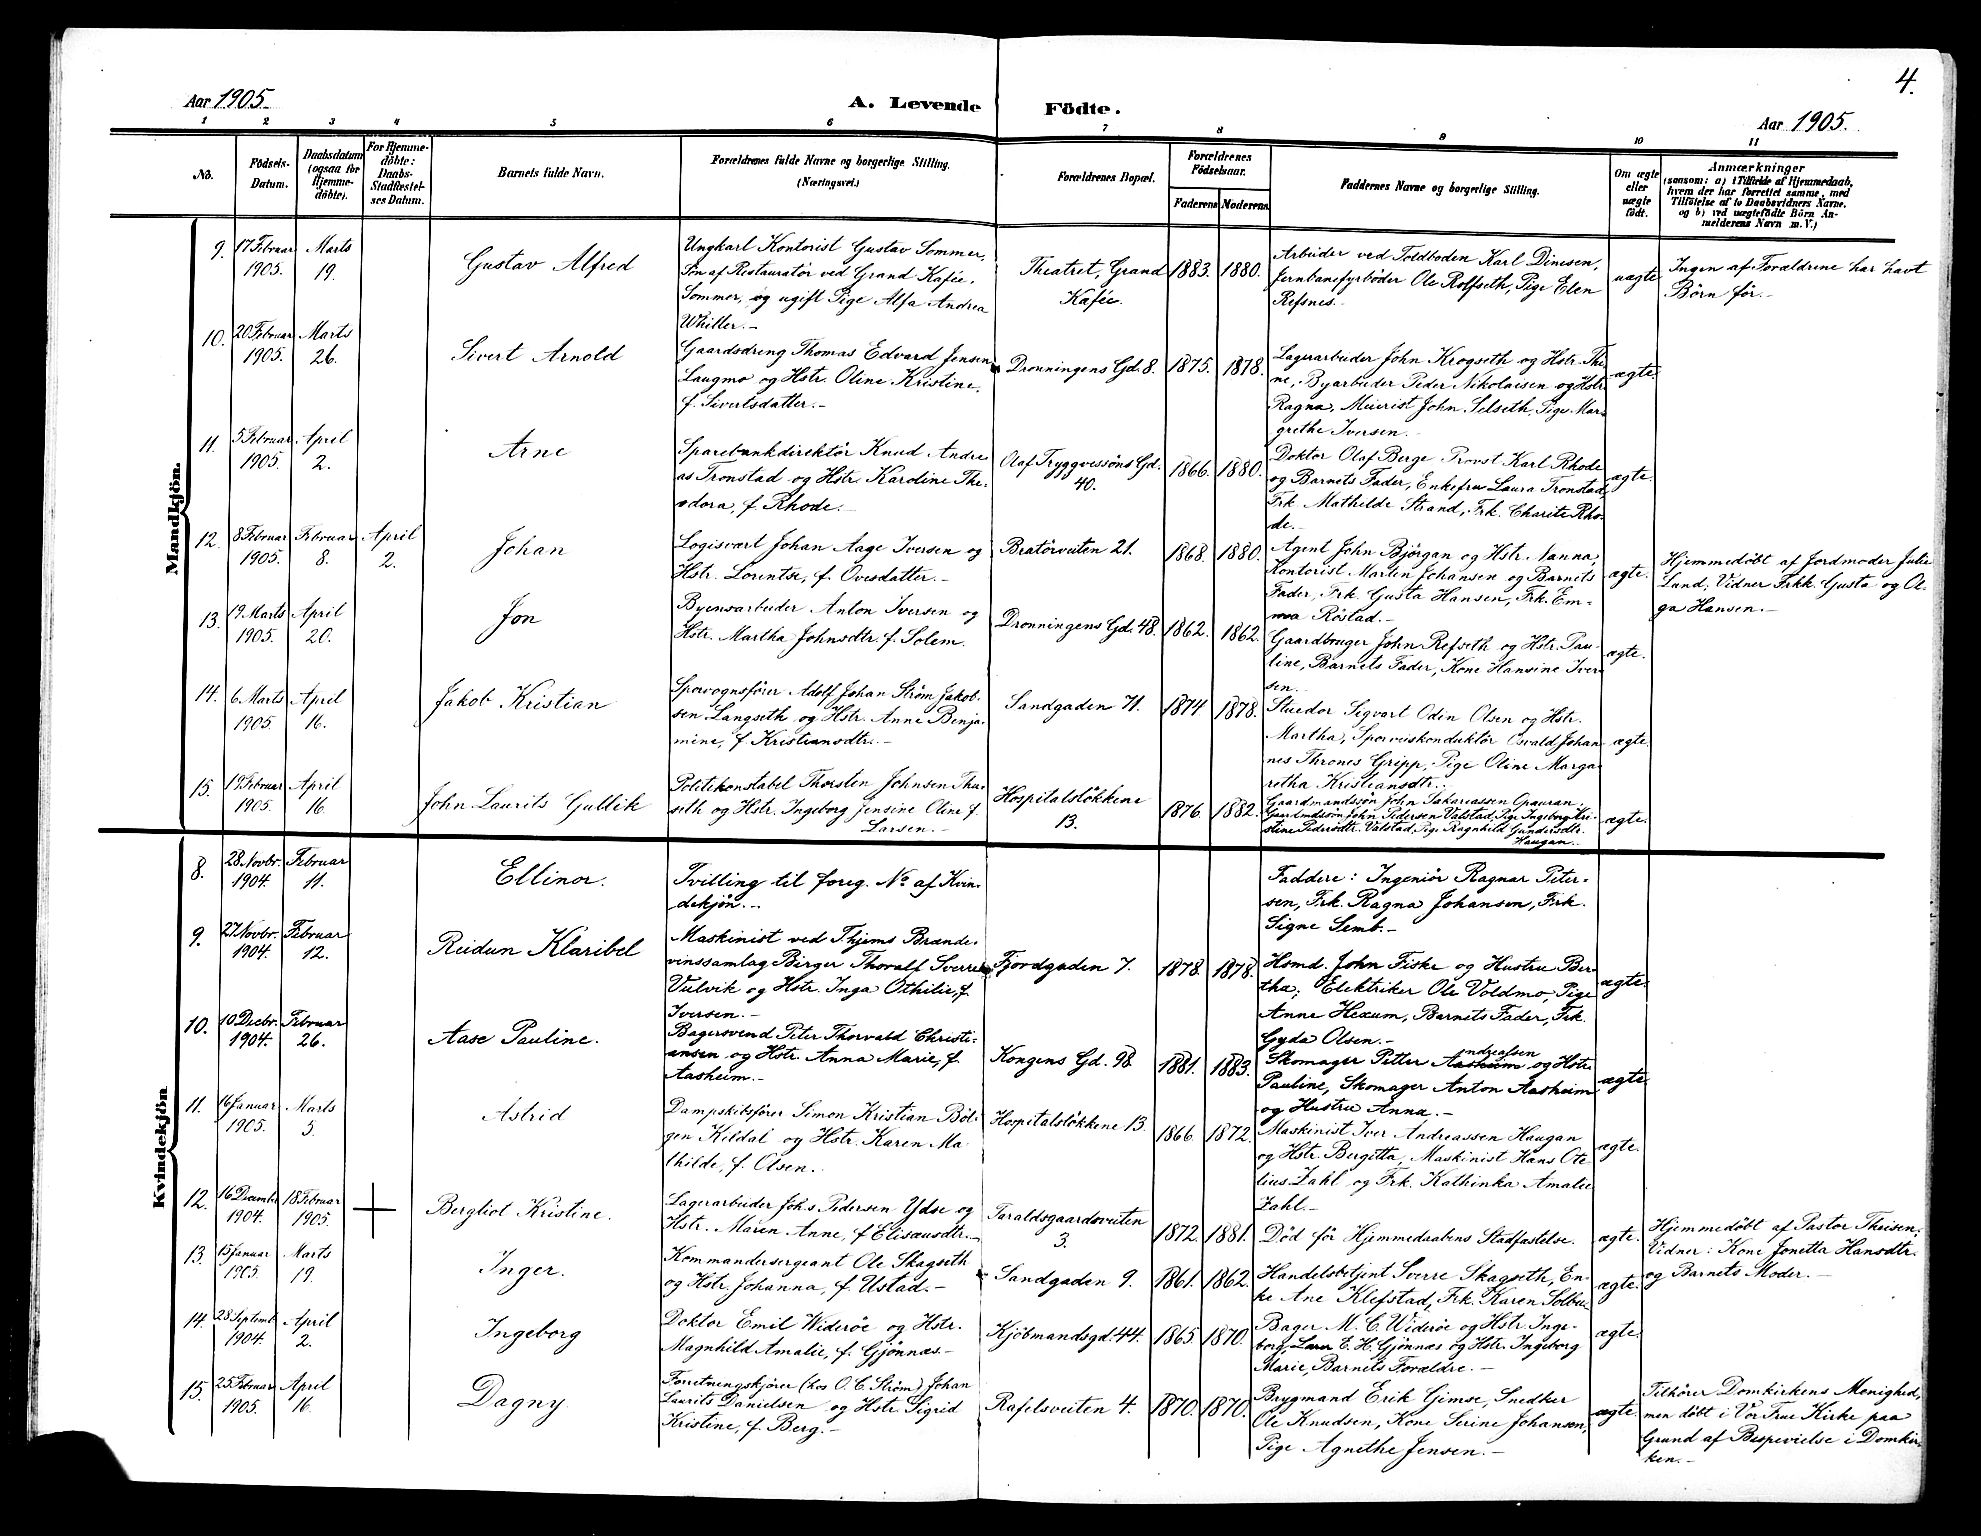 4.
Aar 1905.
A. Levende Födte.
Aar 1905.
1 2 3 4 5 6 7 8 9 10 11
No.
Födsels-
Datum.
Daabsdatum
(ogsaa for
Hjemme-
döbte).
For Hjemme-
döbte:
Daabs-
Stadfæstel-
ses Datum.
Barnets fulde Navn.
Forældrenes fulde Navne og borgerlige Stilling.
(Næringsvei.)
Forældrenes Bopæl.
Forældrenes
Födselsaar.
Faderens
Moderens
Faddernes Navne og borgerlige Stilling.
Om ægte
eller
uægte
födt.
Anmærkninger
(saasom: a) i Tilfælde af Hjemmedaab,
hvem der har forrettet samme, med
Tilföielse af to Daabsvidners Navne,
og b) ved uægtefödte Börn An-
melderens Navn m. V.)
Mandkjön.
9.
17 Februar
1905.
Marts
19.
Gustav Alfred
Ungkarl Kontorist Gustav Sommer,
Søn af Restauratør ved Grand Kafée,
Sommer, og ugift Pige Alfa Andrea
Whitler.-
Theatret, Grand
Kafée.
1883.
1880.
Arbeider ved Toldboden Karl Dinesen,
Jernbanefyrbøder Ole Rolfseth, Pige Elen
Refsnes.
uægte
Ingen af Forældrene har havt
Børn før.-
10.
20 Februar
1905.
Marts
26.
Sivert Arnold
Gaardsdreng Thomas Edvard Jensen
Laugmo og Hstr. Oline Kristine,
f. Sivertsdatter.-
Dronningens Gd. 8.
1875.
1878.
Lagerarbeider John Krogseth og Hstr. Thi-
ne, Byarbeider Peder Nikolaisen og Hstr.
Ragna, Meierist John Selseth, Pige Mar-
grethe Iversen.
ægte.
11.
5 Februar
1905.
April
2.
Arne
Sparebankdirektør Knud Andre-
as Tronstad og Hstr. Karoline The-
odora, f. Rhode.-
Olaf Tryggvessøns Gd.
40.
1866.
1880.
Doktor Olaf Berge Provst Karl Rhode
og Barnets Fader, Enkefru Laura Tronstad,
Frk. Mathilde Strand, Frk. Charite Rho-
de.-
ægte.
12.
8 Februar
1905.
Februar
8.
April
2.
Johan
Logisvært Johan Aage Iversen og
Hstr. Lorentse, f. Ovesdatter.-
Bratørveiten 21.
1868.
1880.
Agent John Bjørgan og Hstr. Nanna,
Kontorist Martin Johansen og Barnets
Fader, Frk. Gusta Hansen, Frk. Em-
ma Røstad.-
ægte.
Hjemmedøbt af Jordmoder Julie
Lund, Vidner Frkk. Gusta og Ol-
ga Hansen.-
13.
19 Marts
1905.
April
20.
Jon
Byensarbeider Anton Iversen og
Hstr. Martha Johnsdtr. f. Solem.
Dronningens Gd. 48.
1862.
1862.
Gaardbruger John Refseth og Hstr. Pau-
line, Barnets Fader, Kone Hansine Iver-
sen.
ægte.
14.
6 Marts
1905.
April
16.
Jakob Kristian
Sporvognsfører Adolf Johan Strøm Jakob-
sen Langseth og Hstr. Anne Benja-
mine, f. Kristiansdtr.-
Sandgaden 71.
1874
1878.
Stuedor Sigvart Odin Olsen og Hstr.
Martha, Sporveiskonduktør Osvald Johan-
nes Thrones Gripp, Pige Oline Marga-
retha Kristiansdtr.
ægte.
15.
19 Februar
1905.
April
16.
John Laurits Gullik
Politikonstabel Thorsten Johnsen Thu-
seth og Hstr. Ingeborg Jensine Oline f.
Larsen.-
Hospitalsløkkene
13.
1876.
1882.
Gaardmandssøn John Sakariassen
Gaardmdssøn John Pedersen Valstad, Pige Ingeborg Kri-
stine Pedersdtr. Valstad, Pige Ragnhild Gundersdtr.
Haugan.
ægte.
Kvindekjön
8.
28 Novbr.
1904.
Februar
11.
Ellinor.
Tvilling til foreg. No. af Kvin-
dekjøn.-
Faddere: Ingeniør Ragnar Peter-
sen, Frk. Ragna Johansen, Frk.
Signe Semb.-
9.
27 Novbr.
1904.
Februar
12.
Reidun Klaribel
Maskinist ved Thjems Brænde-
vinssamlag Birger Thoralf Sverre
Vulvik og Hstr. Inga Othilie, f.
Iversen.-
Fjordgaden 7.
1878.
1878.
Hsmd. John Fiske og Hustru Ber-
tha; Elektriker Ole Voldmo, Pige
Anne Hexum, Barnets Fader, Frk.
Gyda Olsen.-
ægte.
10.
10 Decbr.
1904.
Februar
26.
Aase Pauline.
Bagersvend Peter Thorvald Christi-
ansen og Hstr. Anna Marie, f.
Aasheim.-
Kongens Gd. 98.
1881.
1883.
ndreassen
Skomager Petter Aasheim og Hstr.
Pauline, Skomager Anton Aasheim
og Hustru Anna.-
ægte.
11.
16 Januar
1905.
Marts
5.
Astrid
Dampskibsfører Simon Kristian Bøl-
gen Kildal og Hstr. Karen Ma-
thilde, f. Olsen.
Hospitalsløkkene 13.
1866.
1872.
Maskinist Iver Andreassen Haugan
og Hstr. Bergitta, Maskinist Hans Ote-
lius Zahl og Frk. Kathinka Amalie
Zahl.-
ægte.
12.
16 Decembr
1904.
18 Februar
1905.
Bergliot Kristine.
Lagerarbeider Johs Pedersen Ydse og
Hstr. Maren Anne, f. Elisæusdtr.-
Taraldsgaardsveiten
3.
1872.
1881.
Død før Hjemmedaabens Stadfæstelse.
ægte.
Hjemmedøbt af Pastor Theisen,
Vidner: Kone Jonetta Hansdtr.
og Barnets Moder.-
13.
15 Januar
1905.
Marts
19.
Inger.
Kommandersergeant Ole Skagseth
og Hstr. Johanna, f. Ustad.-
Sandgaden 9.
1861.
1862.
Handelsbetjent Sverre Skagseth, En-
ke Ane Klefstad, Frk. Karen Solbu.
ægte.
14.
28 Septemb
1904.
April
2.
Ingeborg
Doktor Emil Widerøe og Hstr.
Magnhild Amalie, f. Gjønnæs.-
Kjøbmandsgd. 44.
1865.
1870.
Bager M. C. Widerøe og Hstr. Inge-
borg, Lærer E. H. Gjønnæs og Hstr. Ingeborg
Marie, Barnets Forældre.-
ægte.
15.
25 Februar
1905.
April
16.
Dagny
Forretningskjører (hos O. C. Strøm) Johan
Laurits Danielsen og Hstr. Sigrid
Kristine, f. Berg.-
Rafelsveiten 4.
1870.
1870.
Brygmand Erik Gimse, Snedker
Ole Knudsen, Kone Serine Johansen,
Pige Agnethe Jensen.-
ægte.
Tilhører Domkirkens Menighed,
men døbt i Vor Frue Kirke paa
Grund af Bispevielse i Domkir-
ken.-